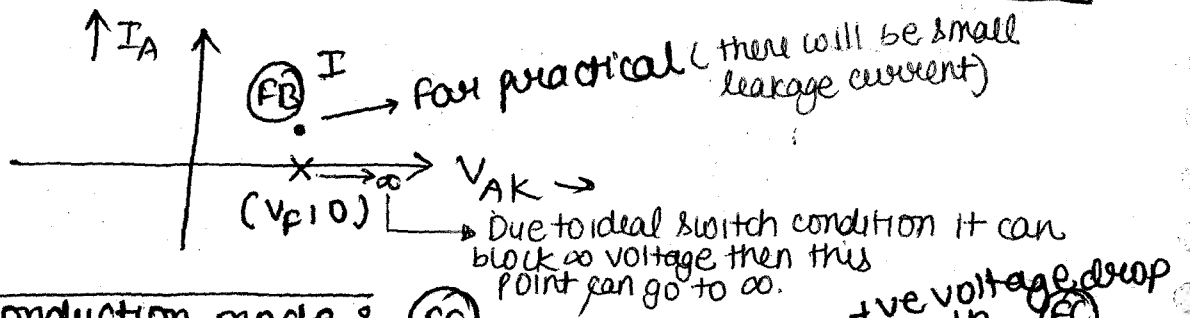 ↑ I_A
FB I → For practical (there will be small
leakage current)
× → ∞ V_AK →
(V_F, 0) → Due to ideal switch condition it can
block ∞ voltage then this
point can go to ∞.
onduction mode : FC +ve voltage drop
in FC